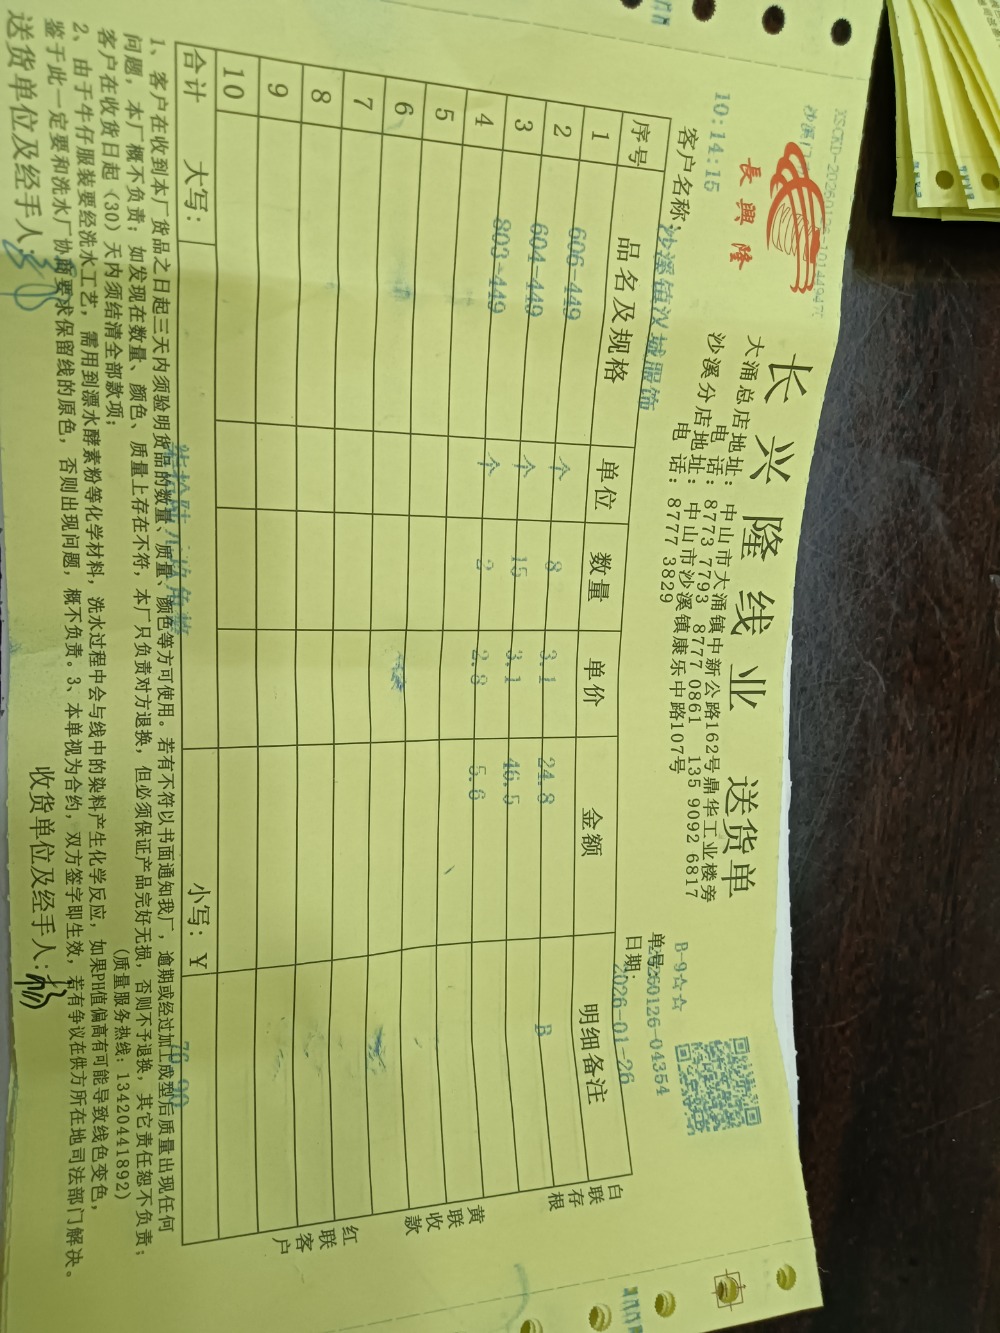 长兴隆线业 送货单
長興隆
大涌总店地址: 中山市大涌镇中新公路162号鼎华工业楼旁
电 话: 8773 7793 8777 0861 135 9092 6817
沙溪分店地址: 中山市沙溪镇康乐中路107号
电 话: 8777 3829
10:14:15
B-9☆☆
单号: 20260126-04354
日期: 2026-01-26
客户名称: 沙溪镇汉城服饰
序号 品名及规格 单位 数量 单价 金额 明细备注
1 606-449 个 8 3.1 24.8 B
2 604-449 个 15 3.1 46.5
3 803-449 个 2 2.8 5.6
4
5
6
7
8
9
10
合计 大写: 柒拾陆元玖角整 小写: ¥ 76.90
白联存根
黄联收款
红联客户
1、客户在收到本厂货品之日起三天内须验明货品的数量、质量、颜色等方可使用。若有不符以书面通知我厂,逾期或经过加工成型后质量出现任何
问题,本厂概不负责;如发现在数量、颜色、质量上存在不符,本厂只负责对方退换,但必须保证产品完好无损,否则不予退换,其它责任恕不负责;
客户在收货日起(30)天内须结清全部款项; (质量服务热线: 13420441892)
2、由于牛仔服装要经洗水工艺,需用到漂水酵素粉等化学材料,洗水过程中会与线中的染料产生化学反应,如果PH值偏高有可能导致线色变色,
鉴于此一定要和洗水厂协商要求保留线的原色,否则出现问题,概不负责。3、本单视为合约,双方签字即生效,若有争议在供方所在地司法部门解决。
送货单位及经手人: 收货单位及经手人: 杨